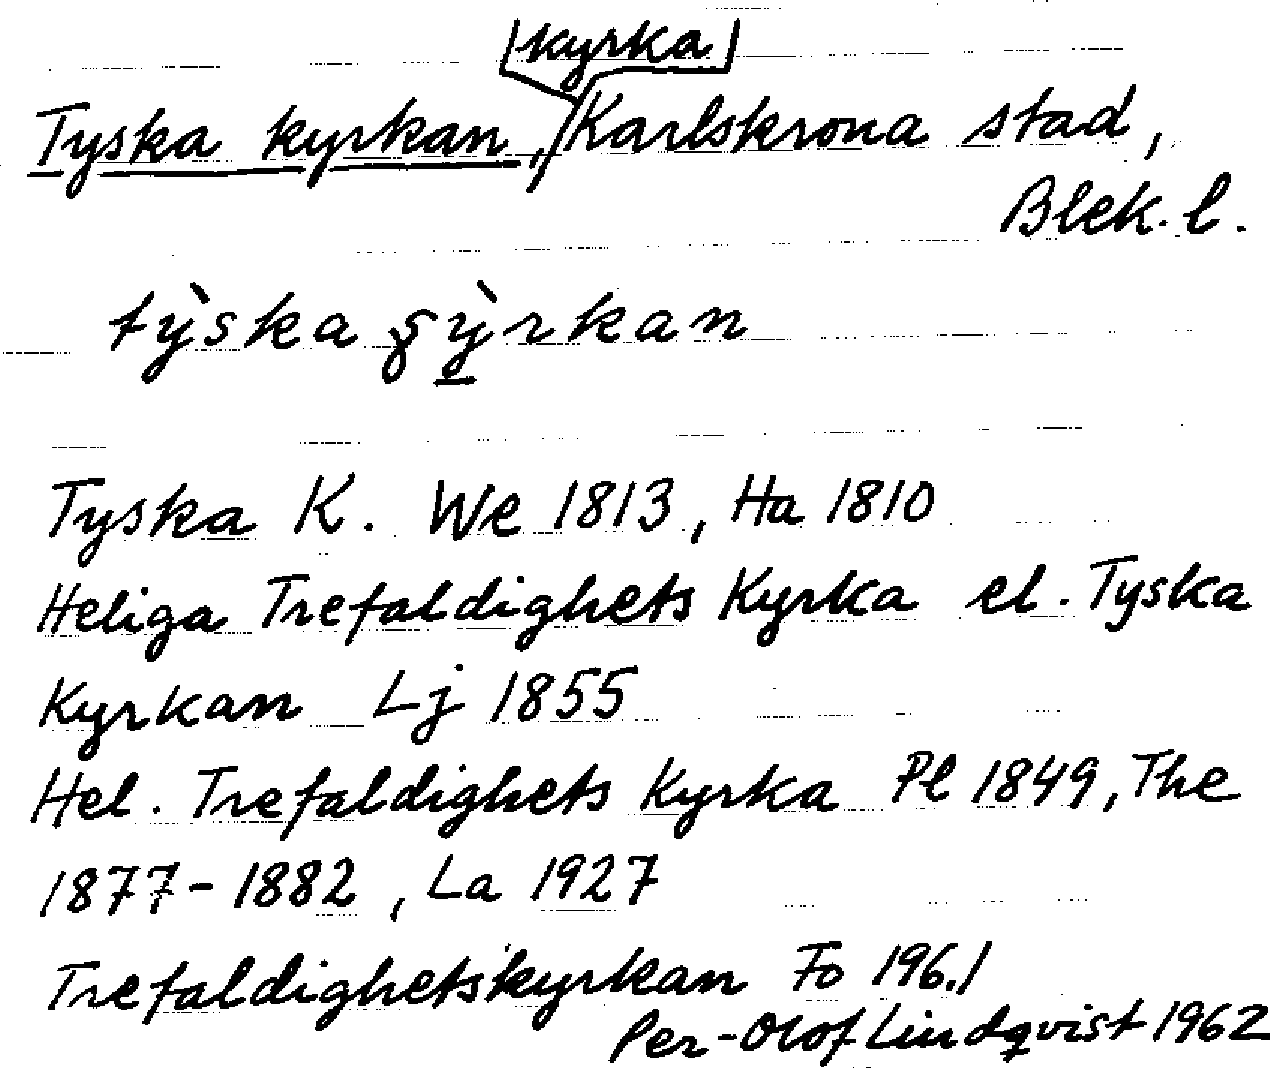 kyrka
Tyska kyrkan, Karlskrona stad,
Blek. l.
tỳska ꞔỳrkan
Tyska K. We 1813, Ha 1810
Heliga Trefaldighets Kyrka el. Tyska
Kyrkan Lj 1855
Hel. Trefaldighets Kyrka Pl 1849, The
1877-1882, La 1927
Trefaldighetskyrkan Fo 1961
Per-Olof Lindqvist 1962